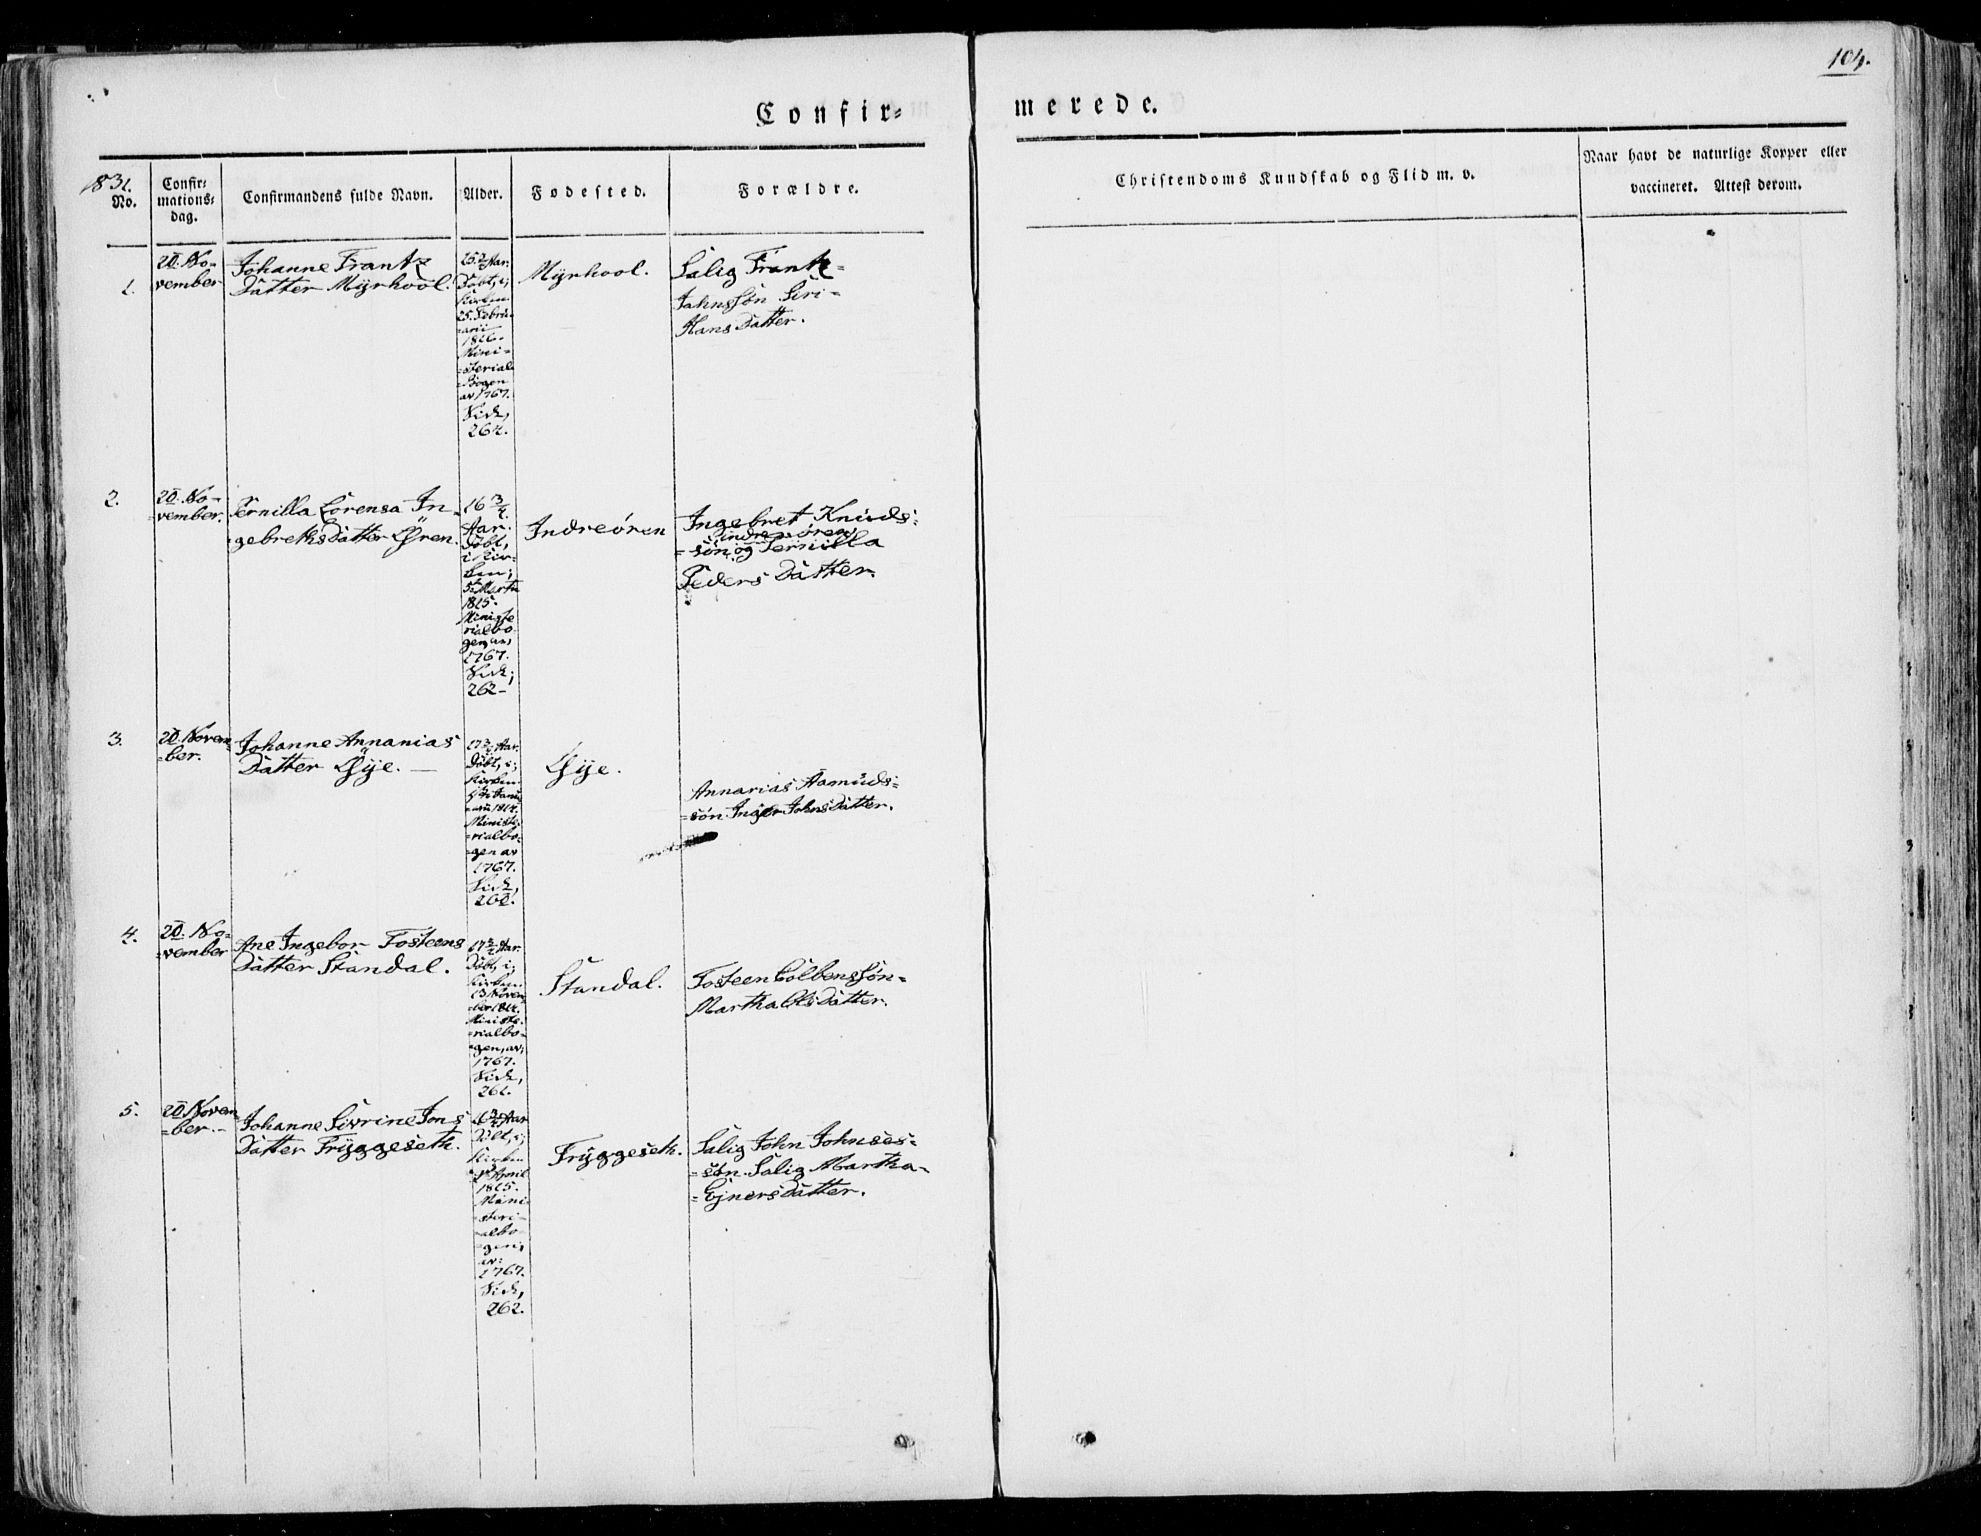 104.
Confir=
merede.
1831.
No.
Confir=
mations=
dag.
Confirmandens fulde Navn.
Alder.
Fødested.
Forældre.
Christendoms Kundskab og Flid m. v.
Naar havt de naturlige Kopper eller
vaccineret. Attest derom.
1.
20. No-
vember
Johanne Frantz
Datter Myrhool.
Aar.
Døbt, i;
Kirken
25. Febru-
arii
1816.
Mini=
=sterial
=Bogen
av 1767.
Sich,
264.
Myrhool.
Salig Frantz=
Jahnssøn Siri=
Hans Datter.
2.
20. No-
=vember.
Pernilla Lorensa In=
=gebretks Datter Øren.
16 3/4
Aar.
Døbt,
i Kir-
ken;
5te Marti
1815.
Ministe
rialbo
gen av,
1767.
Sich;
262-
Indreøren
Ingebret Knuds=
indreøren
=søn og Pernilla
Peders Datter.
3.
20. Novem=
=ber.
Johanne Annanias
Datter Øye. —
17 3/4 Aar.
Døbt, i;
Kirken
Janu
=arii 1814.
Ministe
=rialbo=
=gen av
1767.
Sich,
260.
Øye.
Annanias Aamuds=
=søn. Inger Johns Datter.
4.
20. No=
=vember
Ane Ingebor Tosteens
Datter Standal.
17 Aar.
Døbt, i;
Kirken
13 Novem
=ber 1814.
Ministe.
=rialbo=
=gen, av,
1767.
Sich,
261.
Standal.
Tosteen Colbenssøn=
Martha Ols Datter.
5.
20 Novem
=ber.-
Johanne Sivrine Jons
Datter Tryggeseth.
16 3/4 Aar
Døbt, i;
Kirken
April
1815.
Mini=
=steri=
=albo=
=gen,
av:
1767.
Sich,
262.
Tryggeseth.
Salig John Johnses=
=søn. Salig Martha=
=Ejners Datter.